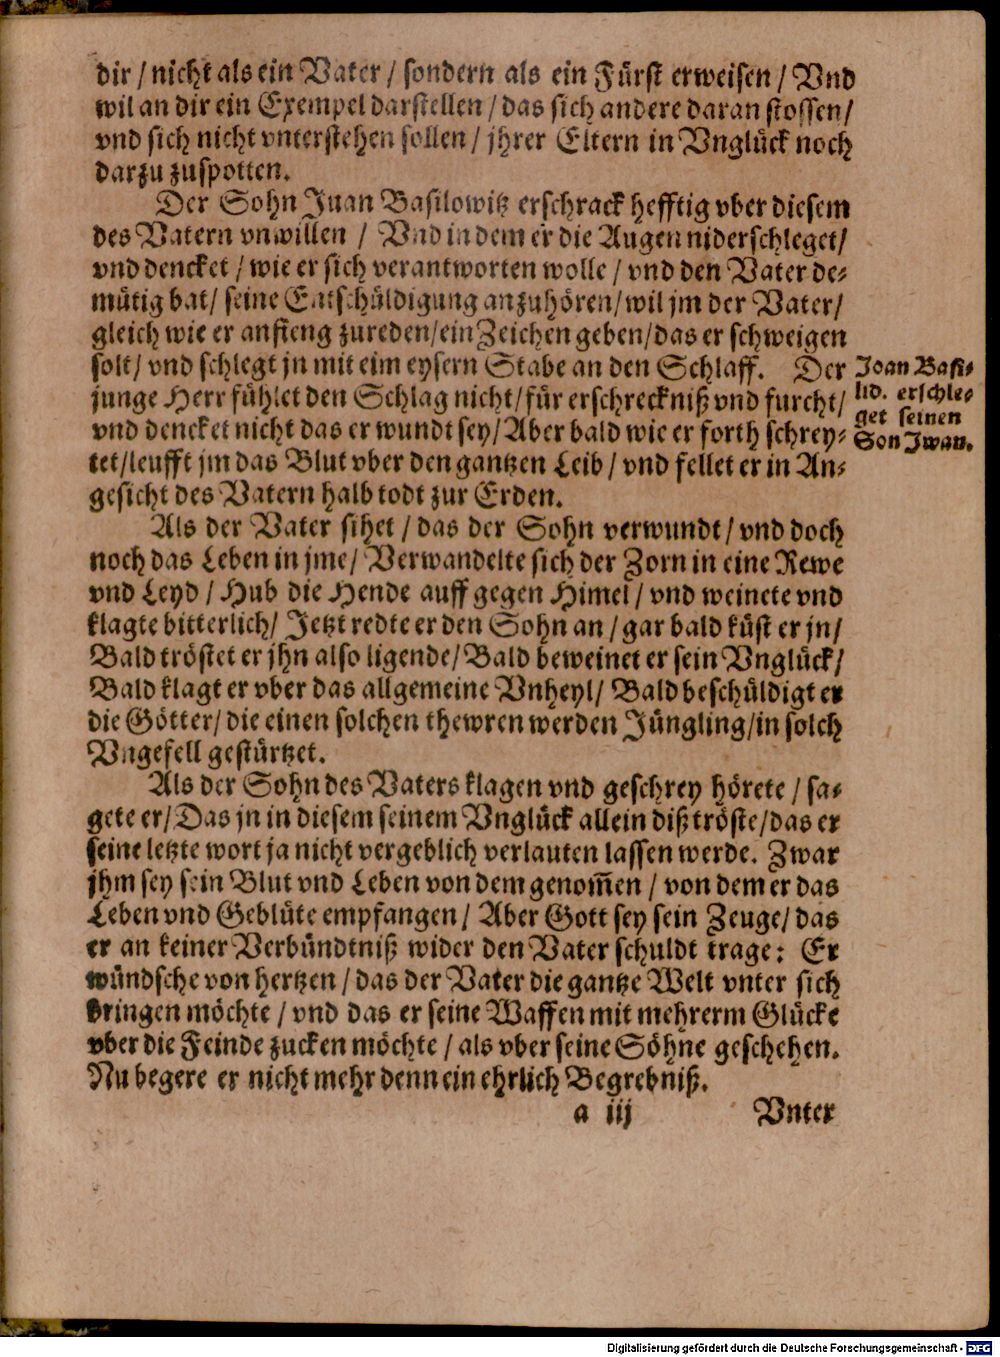 dir / nicht als ein Vater / sondern als ein Fürst erweisen / Vnd
wil an dir ein Exempel darstellen / das sich andere daran stossen /
vnd sich nicht vnterstehen sollen / jhrer Eltern in Vnglück noch
darzu zuspotten.
Der Sohn Iuan Basilowitz erschrack hefftig vber diesem
des Vatern vnwillen / Vnd in dem er die Augen niderschleget /
vnd dencket / wie er sich verantworten wolle / vnd den Vater de-
mütig bat / seine Entschüldigung anzuhören / wil jm der Vater /
gleich wie er anfieng zureden / ein Zeichen geben / das er schweigen
solt / vnd schlegt jn mit eim eysern Stabe an den Schlaff. Der
junge Herr fühlet den Schlag nicht / für erschreckniß vnd furcht /
vnd dencket nicht das er wundt sey / Aber bald wie er forth schrey-
tet / leufft jm das Blut vber den gantzen Leib / vnd fellet er in An-
gesicht des Vatern halb todt zur Erden.
Ioan Basi-
lid. erschle-
get seinen
Son Iwan.
Als der Vater sihet / das der Sohn verwundt / vnd doch
noch das Leben in jme / Verwandelte sich der Zorn in eine Rewe
vnd Leyd / Hub die Hende auff gegen Himel / vnd weinete vnd
klagte bitterlich / Jetzt redte er den Sohn an / gar bald küst er jn /
Bald tröstet er jhn also ligende / Bald beweinet er sein Vnglück /
Bald klagt er vber das allgemeine Vnheyl / Bald beschüldigt er
die Götter / die einen solchen thewren werden Jüngling / in solch
Vngefell gestürtzet.
Als der Sohn des Vaters klagen vnd geschrey hörete / sa-
gete er / Das jn in diesem seinem Vnglück allein diß tröste / das er
seine letzte wort ja nicht vergeblich verlauten lassen werde. Zwar
jhm sey sein Blut vnd Leben von dem genom̃en / von dem er das
Leben vnd Geblüte empfangen / Aber Gott sey sein Zeuge / das
er an keiner Verbündtniß wider den Vater schuldt trage: Er
wündsche von hertzen / das der Vater die gantze Welt vnter sich
bringen möchte / vnd das er seine Waffen mit mehrerm Glücke
vber die Feinde zucken möchte / als vber seine Söhne geschehen.
Nu begere er nicht mehr denn ein ehrlich Begrebniß.
a iij Vnter
Digitalisierung gefördert durch die Deutsche Forschungsgemeinschaft - DFG